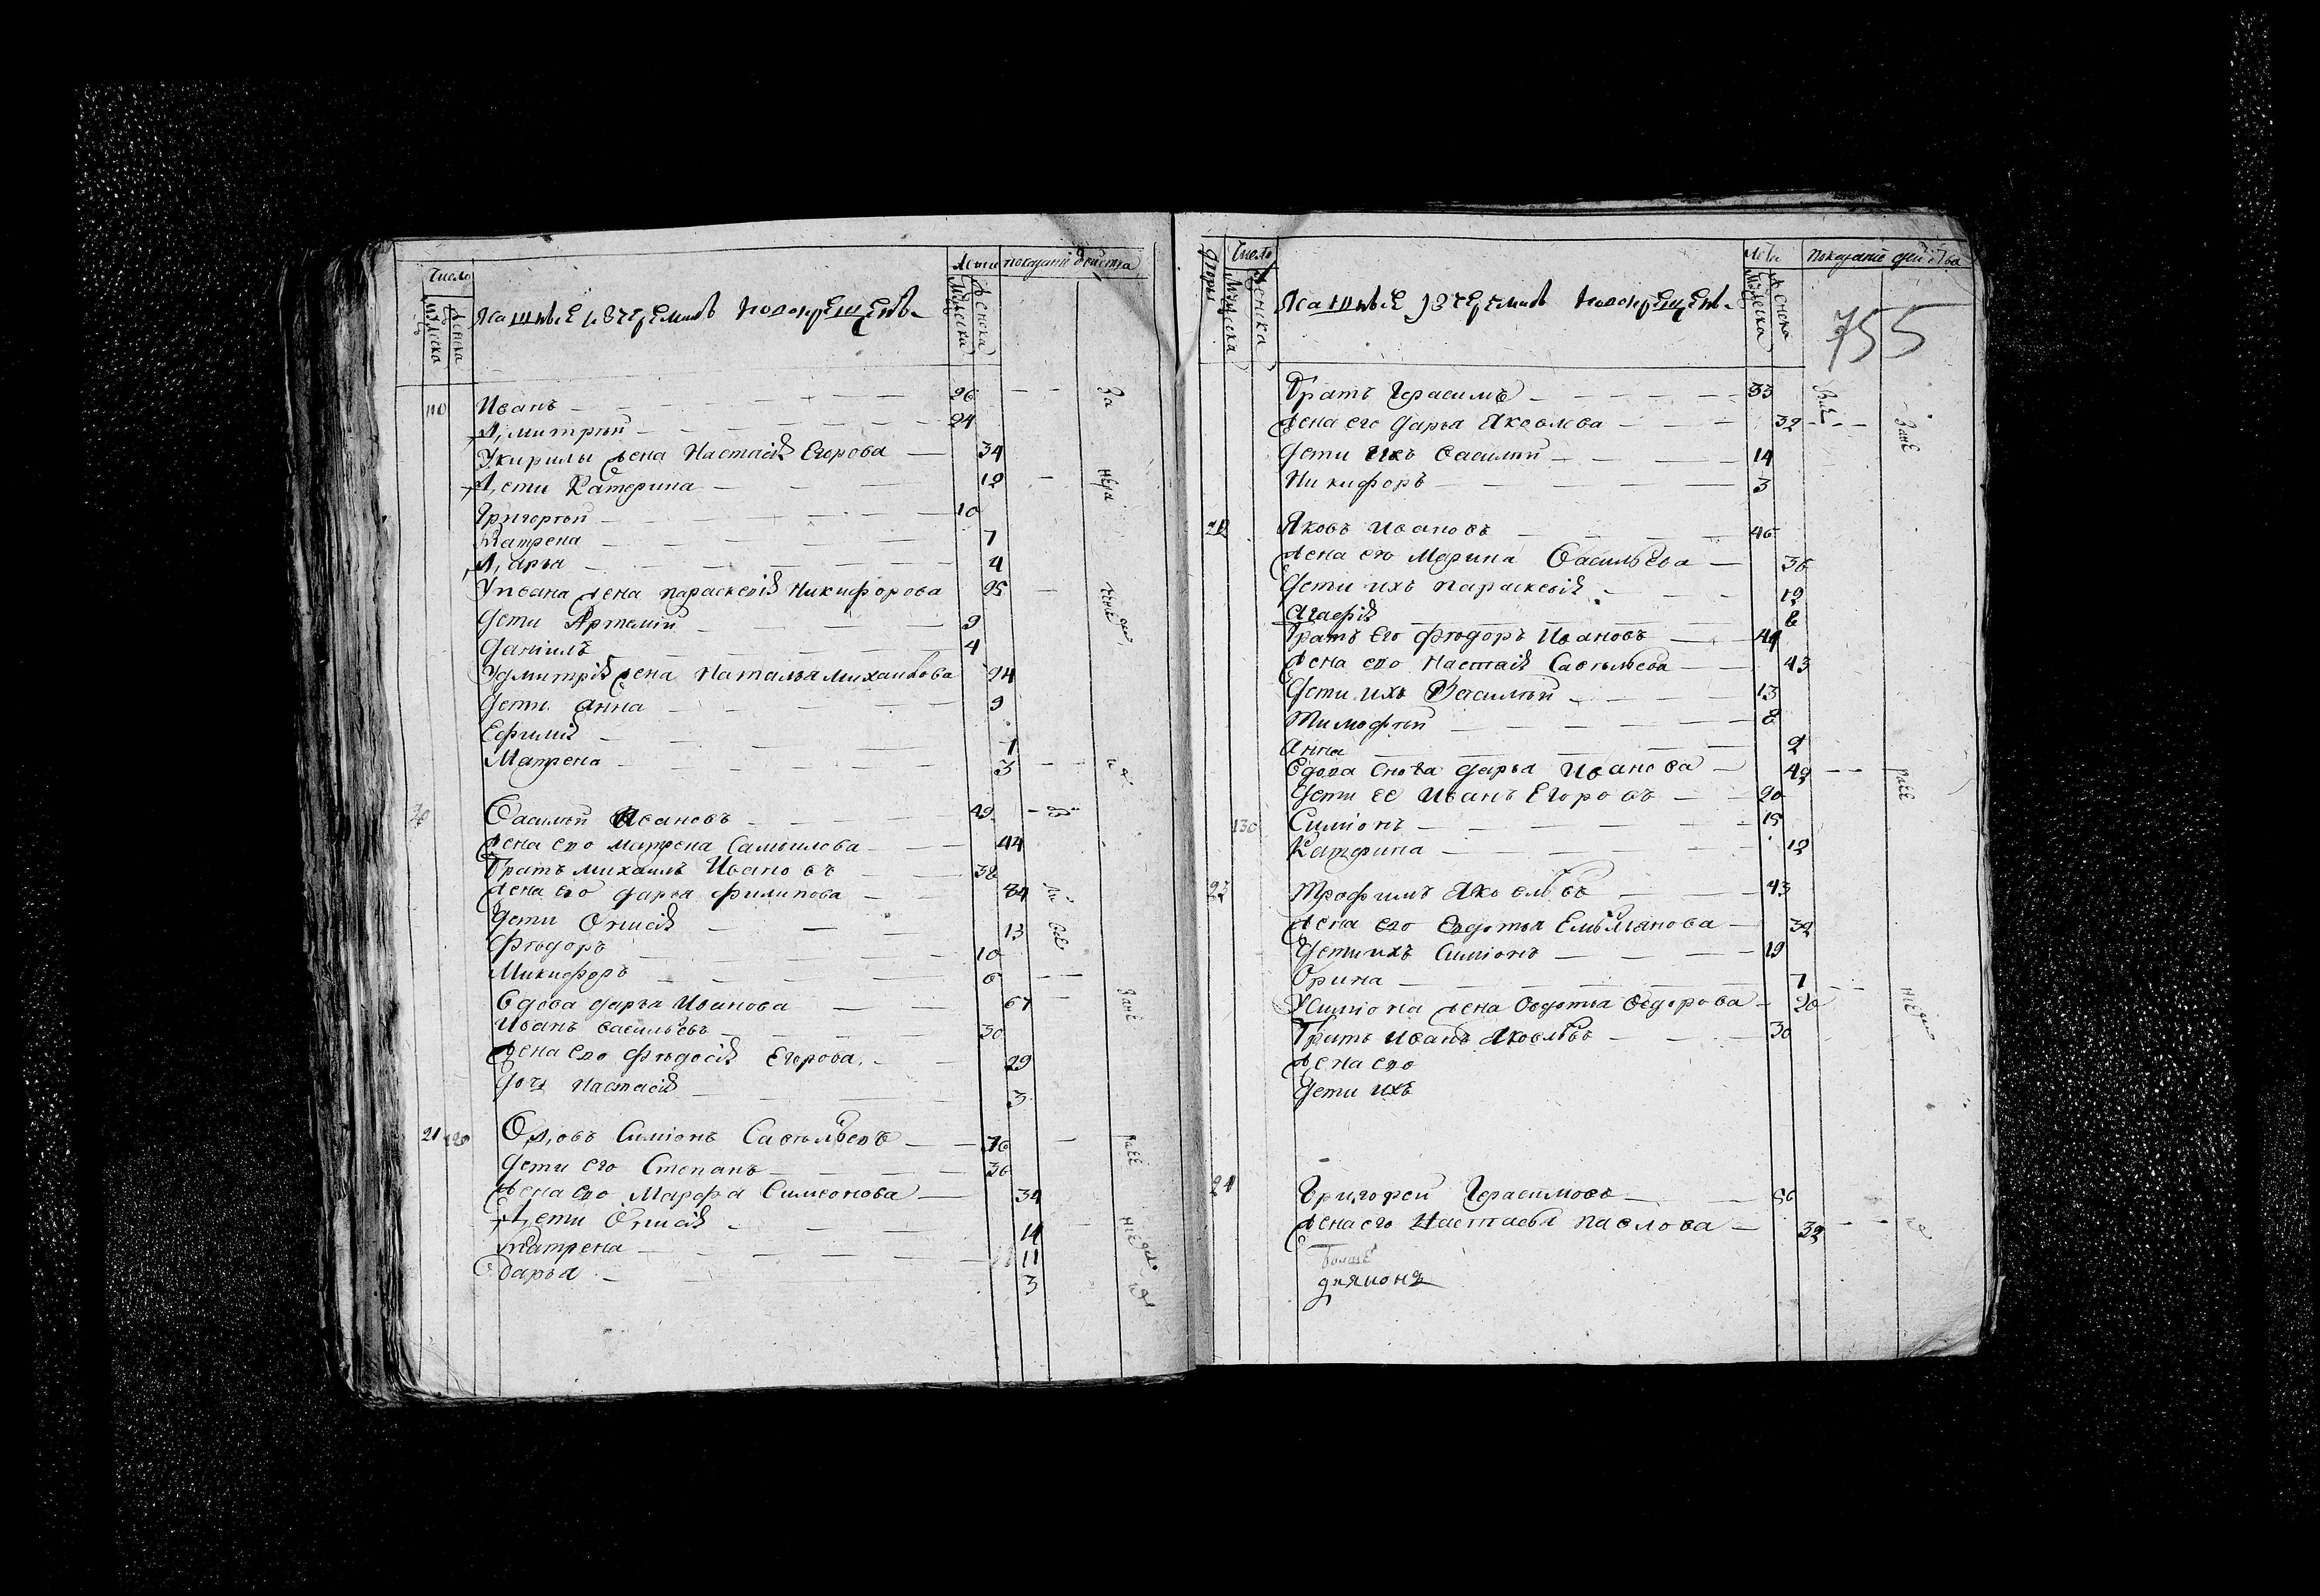 Число
Лета
показаниі действа
Мужеска
Женска
Мужески
Женска
Ясашные изчеремисъ новокрещены
110 Иванъ 26
Дмитрѣй 24
Укирилы жена Настасія Егорова 34
Дети Катерина 12
Григорѣй 10
Матрена 7
Дарья 4
Уивана жена параскевія Никифорова 25
Дети Артемій 9
Даніилъ 4
Удмитрія жена Наталья михаилова 24
Дети Анна 9
Ефимія 7
Матрена 3
20 Василѣй Ивановъ 49
Жена его матрена Самоилова 44
Братъ михаилъ Ивановъ 38
Жена его дарья филипова 34
Дети Онисія 13
Фѣодоръ 10
Микифоръ 6
Вдова дарья Иванова 67
Иванъ васильевъ 30
Жена его Фѣдосія Егорова 29
Дочь Настасія 3
21 120 Вдовъ Симіонъ Савельевъ 76
Дети его Степанъ 36
Жена его Марфа Симеонова 34
Дети Онисія 14
Матрена 11
Дарья 3
Дворы
Число
Лета
показаніе действа
Мужеска
Женска
Мужеска
Женска
Ясашные изчеремисъ новокрещены
755
Братъ Герасимъ 33
Жена его Дарья Яковлева 32
Дети ихъ Василий 14
Никифоръ 3
22 Яковъ Ивановъ 46
Жена его Марина Васильева 36
Дети ихъ параскевія 12
Агафія 6
Братъ Его Фѣодоръ Ивановъ 44
Жена его Настасія Савельева 43
Дети ихъ Василѣй 13
Тимофѣй 8
Анна 2
Вдова сноха дарья Иванова 42
Дети ее Иванъ Егоровъ 20
130 Симіонъ 15
Катерина 12
23 Трофимъ Яковлевъ 43
Жена его Евдотья Емельянова 32
Дети ихъ Симіонъ 19
Орина 7
Усимиона жена Овдотья Федорова 20
Братъ Иванъ Яковлевъ 30
Жена его
Дети ихъ
24 Григорей Герасимовъ
Жена его Настасья павлова 32
диаконъ